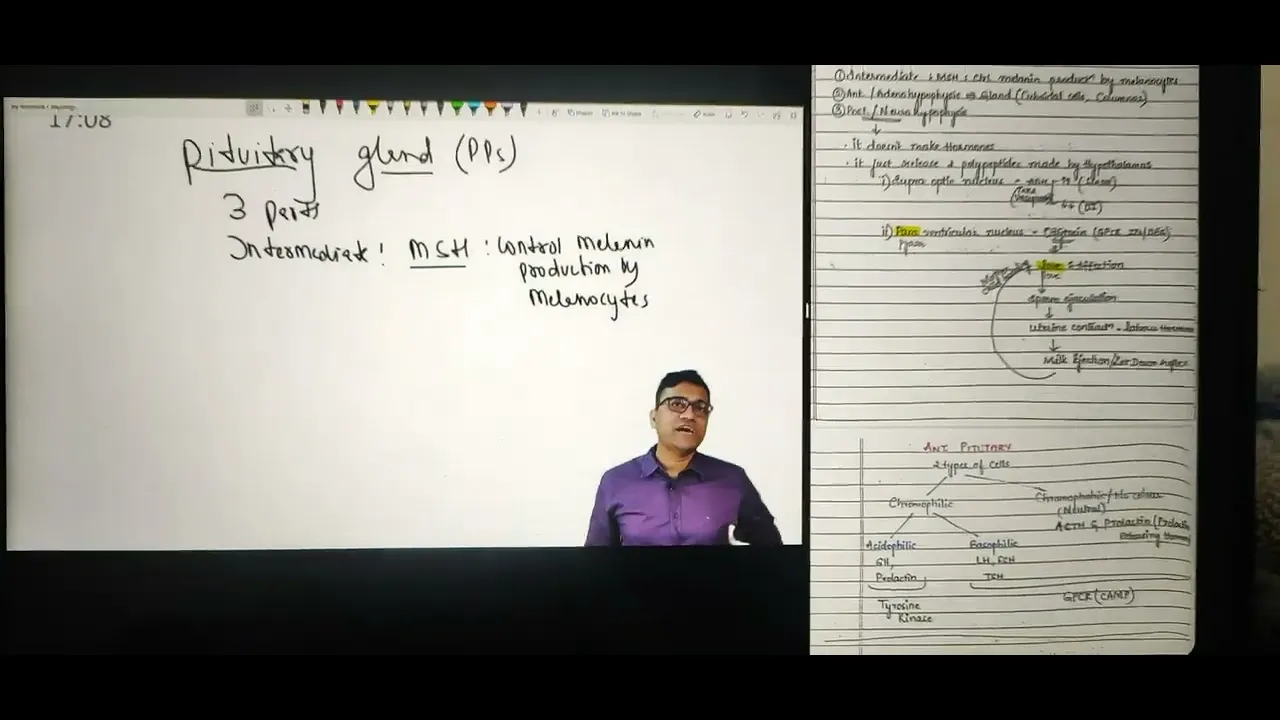 17:08
Pituitory gland (PPs)
3 parts
Intermediate : MSH : Control Melenin
production by
Melenocytes
① Intermediate : MSH : Ctrl melanin product by melanocytes
② Ant. / Adenohypophysis ⇒ Gland (Cuboidal cells, Columnar)
③ Post. / Neurohypophysis
↓
· it doesn't make Hormones
· it just release 2 polypeptides made by Hypothalamus
i) Supra optic nucleus -
(DI)
ii) Para ventricular nucleus -
↓
Sperm ejaculation
↓
Uterine contract - Labour Hormone
↓
Milk Ejection/Let Down reflex
ANT. PITUTARY
2 types of Cells
Chromophilic
Chromophobic/No colour
(Neutral)
ACTH & Prolactin (Prolactin
Releasing Hormone
Acidophilic
Basophilic
GH,
LH, FSH
Prolactin
TSH
Tyrosine
Kinase
GPCR (CAMP)